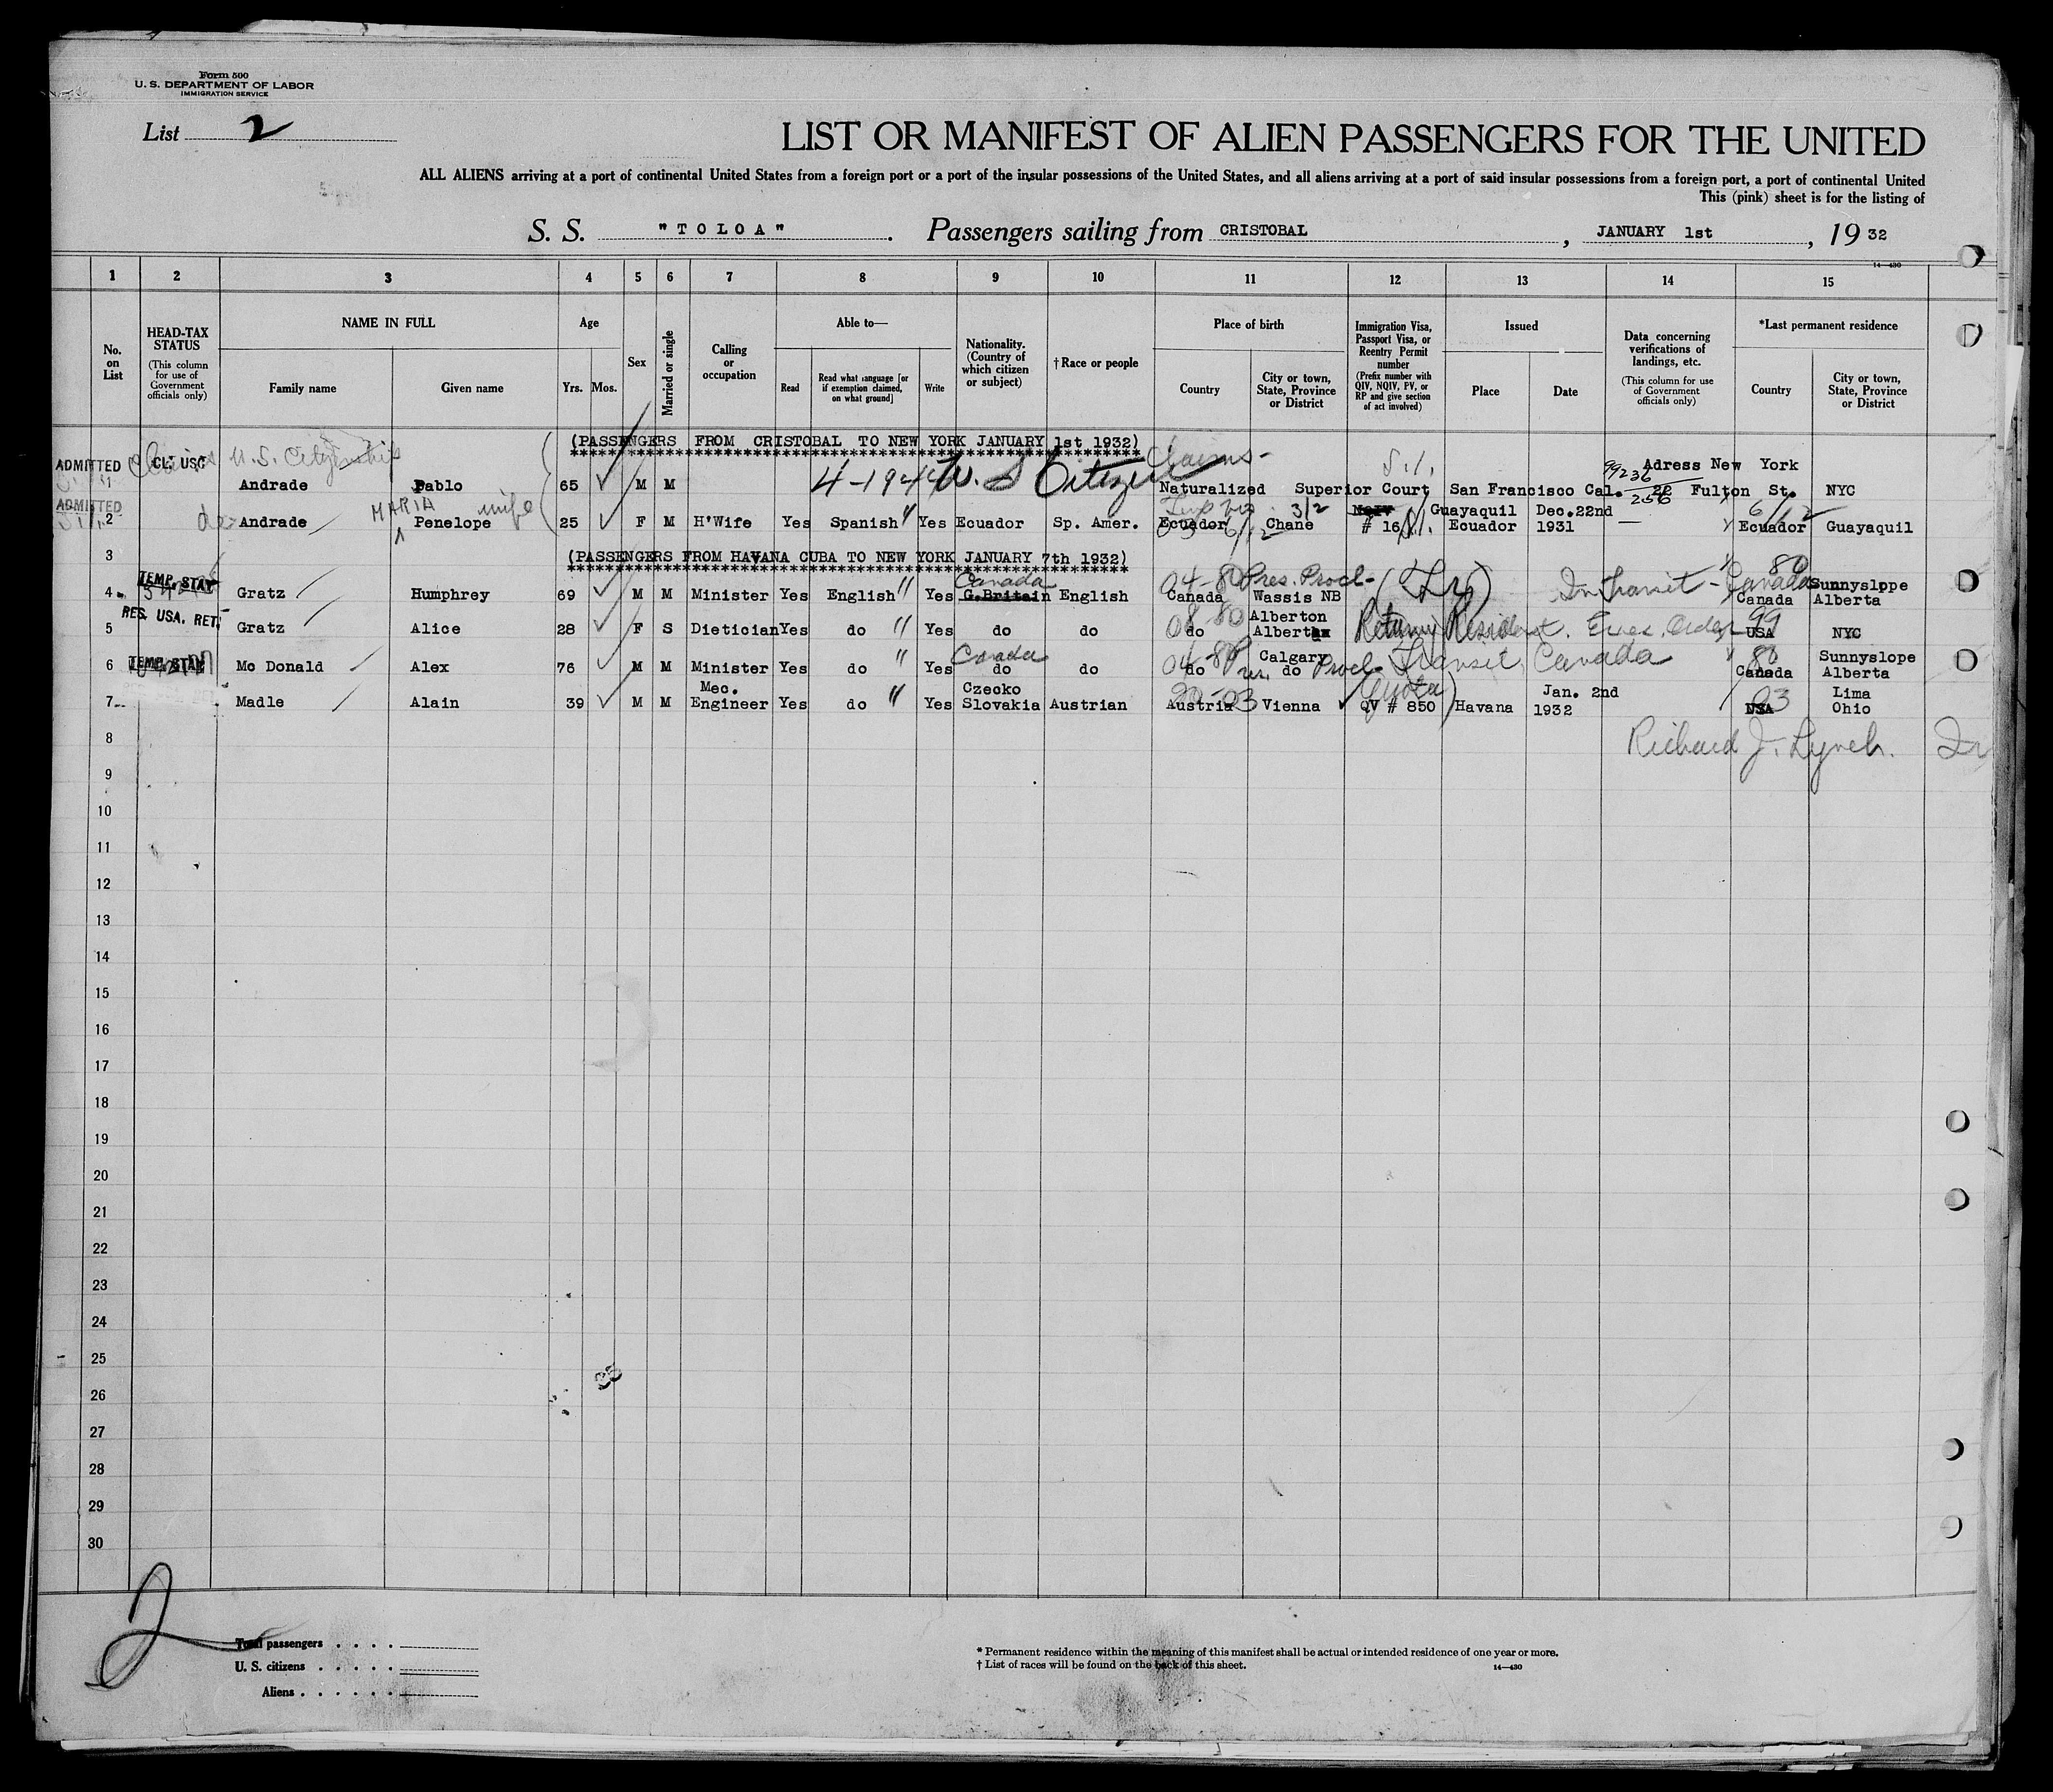 Form 500
U. S. DEPARTMENT OF LABOR
IMMIGRATION SERVICE
List 2
LIST OR MANIFEST OF ALIEN PASSENGERS FOR THE UNITED
ALL ALIENS arriving at a port of continental United States from a foreign port or a port of the insular possessions of the United States, and all aliens arriving at a port of said insular possessions from a foreign port, a port of continental United
This (pink) sheet is for the listing of
S. S. "TOLOA". Passengers sailing from CRISTOBAL, JANUARY 1st, 1932
14—430
1 2 3 4 5 6 7 8 9 10 11 12 13 14 15
No. on List
HEAD-TAX STATUS (This column for use of Government officials only)
NAME IN FULL
Family name Given name
Age
Yrs. Mos.
Sex
Married or single
Calling or occupation
Able to—
Read Read what language [or if exemption claimed, on what ground] Write
Nationality. (Country of which citizen or subject)
†Race or people
Place of birth
Country City or town, State, Province or District
Immigration Visa, Passport Visa, or Reentry Permit number (Prefix number with QIV, NQIV, PV, or RP and give section of act involved)
Issued
Place Date
Data concerning verifications of landings, etc. (This column for use of Government officials only)
*Last permanent residence
Country City or town, State, Province or District
(PASSENGERS FROM CRISTOBAL TO NEW YORK JANUARY 1st 1932)
*****************************************
ADMITTED Claims CL. USC U.S. Citizenship Claims- S.I. 99236 Adress New York
1 Andrade Pablo 65 M M 4-1944 U. S Citizen Naturalized Superior Court San Francisco Cal. 256 Fulton St. NYC
ADMITTED MARIA wife 3/2 Guayaquil Dec.22nd 6/12
2 de Andrade Penelope 25 F M H'Wife Yes Spanish " Yes Ecuador Sp. Amer. Ecuador Chane # 16 Ecuador 1931 Ecuador Guayaquil
3 (PASSENGERS FROM HAVANA CUBA TO NEW YORK JANUARY 7th 1932)
*****************************************
TEMP. STAY Canada 04-80 Pres. Procl- (Tr) In Transit - Canada 80 Sunnyslope
4 Gratz Humphrey 69 M M Minister Yes English " Yes G.Britain English Canada Wassis NB Canada Alberta
RES. USA. RET. 08-80 Alberton
5 Gratz Alice 28 F S Dietician Yes do " Yes do do do Alberta Returning Resident. Exec. Order 99 USA NYC
TEMP. STAY Canada 04-80 Calgary Pres. Procl- Transit Canada 80 Sunnyslope
6 Mc Donald Alex 76 M M Minister Yes do " Yes do do do do Canada Alberta
Mec. Czecko (Quota) Jan. 2nd 03 Lima
7 Madle Alain 39 M M Engineer Yes do " Yes Slovakia Austrian Austria Vienna QV # 850 Havana 1932 USA Ohio
8 Richard J. Lynch. In
9
10
11
12
13
14
15
16
17
18
19
20
21
22
23
24
25
26
27
28
29
30
2
Total passengers . . . .
U. S. citizens . . . . .
Aliens . . . . . .
* Permanent residence within the meaning of this manifest shall be actual or intended residence of one year or more.
† List of races will be found on the back of this sheet.
14—430